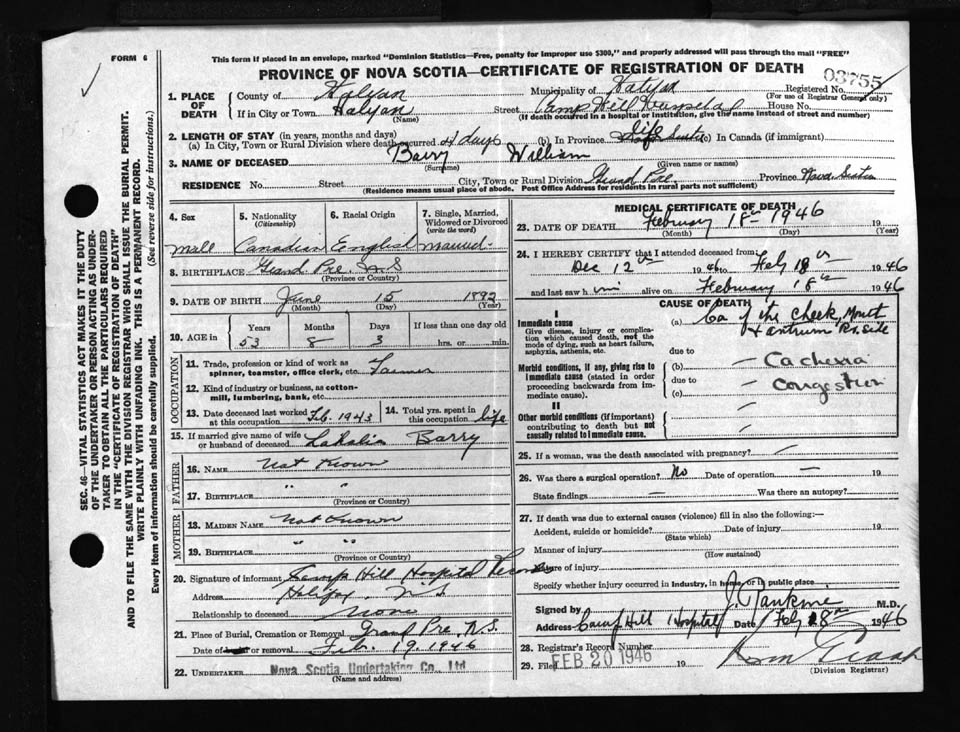 FORM 6
This form if placed in an envelope, marked "Dominion Statistics—Free, penalty for improper use $300," and properly addressed will pass through the mail "FREE"
PROVINCE OF NOVA SCOTIA—CERTIFICATE OF REGISTRATION OF DEATH
03755
Registered No.
(For use of Registrar General only)
1. PLACE OF DEATH
County of Halifax Municipality of Halifax
If in City or Town Halifax Street Camp Hill Hospital House No.
(Name) (If death occurred in a hospital or institution, give the name instead of street and number)
2. LENGTH OF STAY (in years, months and days)
(a) In City, Town or Rural Division where death occurred days (b) In Province life (c) In Canada (if immigrant)
3. NAME OF DECEASED Barry William
(Surname) (Given name or names)
RESIDENCE No. Street City, Town or Rural Division Grand Pre. Province Nova Scotia
(Residence means usual place of abode. Post Office Address for residents in rural parts not sufficient)
4. Sex
Male
5. Nationality (Citizenship)
Canadian
6. Racial Origin
English
7. Single, Married, Widowed or Divorced (write the word)
Married
8. BIRTHPLACE Grand Pre. N.S
(Province or Country)
9. DATE OF BIRTH June 15 1892
(Month) (Day) (Year)
10. AGE in Years Months Days If less than one day old
53 8 3 hrs. or min.
OCCUPATION
11. Trade, profession or kind of work as spinner, teamster, office clerk, etc. Farmer
12. Kind of industry or business, as cotton-mill, lumbering, bank, etc.
13. Date deceased last worked at this occupation Feb. 1943
14. Total yrs. spent in this occupation life
15. If married give name of wife or husband of deceased Barry
FATHER
16. NAME Not Known
17. BIRTHPLACE " "
(Province or Country)
MOTHER
18. MAIDEN NAME Not Known
19. BIRTHPLACE " "
(Province or Country)
20. Signature of informant Camp Hill Hospital Records
Address Halifax, N.S.
Relationship to deceased None
21. Place of Burial, Cremation or Removal Grand Pre, N.S.
Date of burial or removal Feb. 19. 1946
22. UNDERTAKER Nova Scotia Undertaking Co., Ltd
(Name and address)
MEDICAL CERTIFICATE OF DEATH
23. DATE OF DEATH February 18th 1946 19
(Month) (Day) (Year)
24. I HEREBY CERTIFY that I attended deceased from
Dec 12th 1946 to Feb 18th 1946
and last saw him alive on February 18th 1946
CAUSE OF DEATH
I
Immediate cause
Give disease, injury or complication which caused death, not the mode of dying, such as heart failure, asphyxia, asthenia, etc.
(a) Ca of the cheek, Mouth
+ antrum, Rt. side
due to
Morbid conditions, if any, giving rise to immediate cause (stated in order proceeding backwards from immediate cause).
(b) Cachexia
due to
(c) Congestion
II
Other morbid conditions (if important) contributing to death but not causally related to immediate cause.
25. If a woman, was the death associated with pregnancy?
26. Was there a surgical operation? No Date of operation — 19
State findings — Was there an autopsy?
27. If death was due to external causes (violence) fill in also the following:—
Accident, suicide or homicide? Date of injury 19
(State which)
Manner of injury
(How sustained)
Nature of injury
Specify whether injury occurred in Industry, in home, or in public place
Signed by J. Rankine M.D.
Address Camp Hill Hospital Date Feb 18th 1946
28. Registrar's Record Number
29. Filed FEB 20 1946 19
(Division Registrar)
SEC. 46—VITAL STATISTICS ACT MAKES IT THE DUTY
OF THE UNDERTAKER OR PERSON ACTING AS UNDER-
TAKER TO OBTAIN ALL THE PARTICULARS REQUIRED
IN THE "CERTIFICATE OF REGISTRATION OF DEATH"
AND TO FILE THE SAME WITH THE DIVISION REGISTRAR WHO SHALL ISSUE THE BURIAL PERMIT.
WRITE PLAINLY WITH UNFADING INK. THIS IS A PERMANENT RECORD.
Every item of information should be carefully supplied. (See reverse side for instructions.)